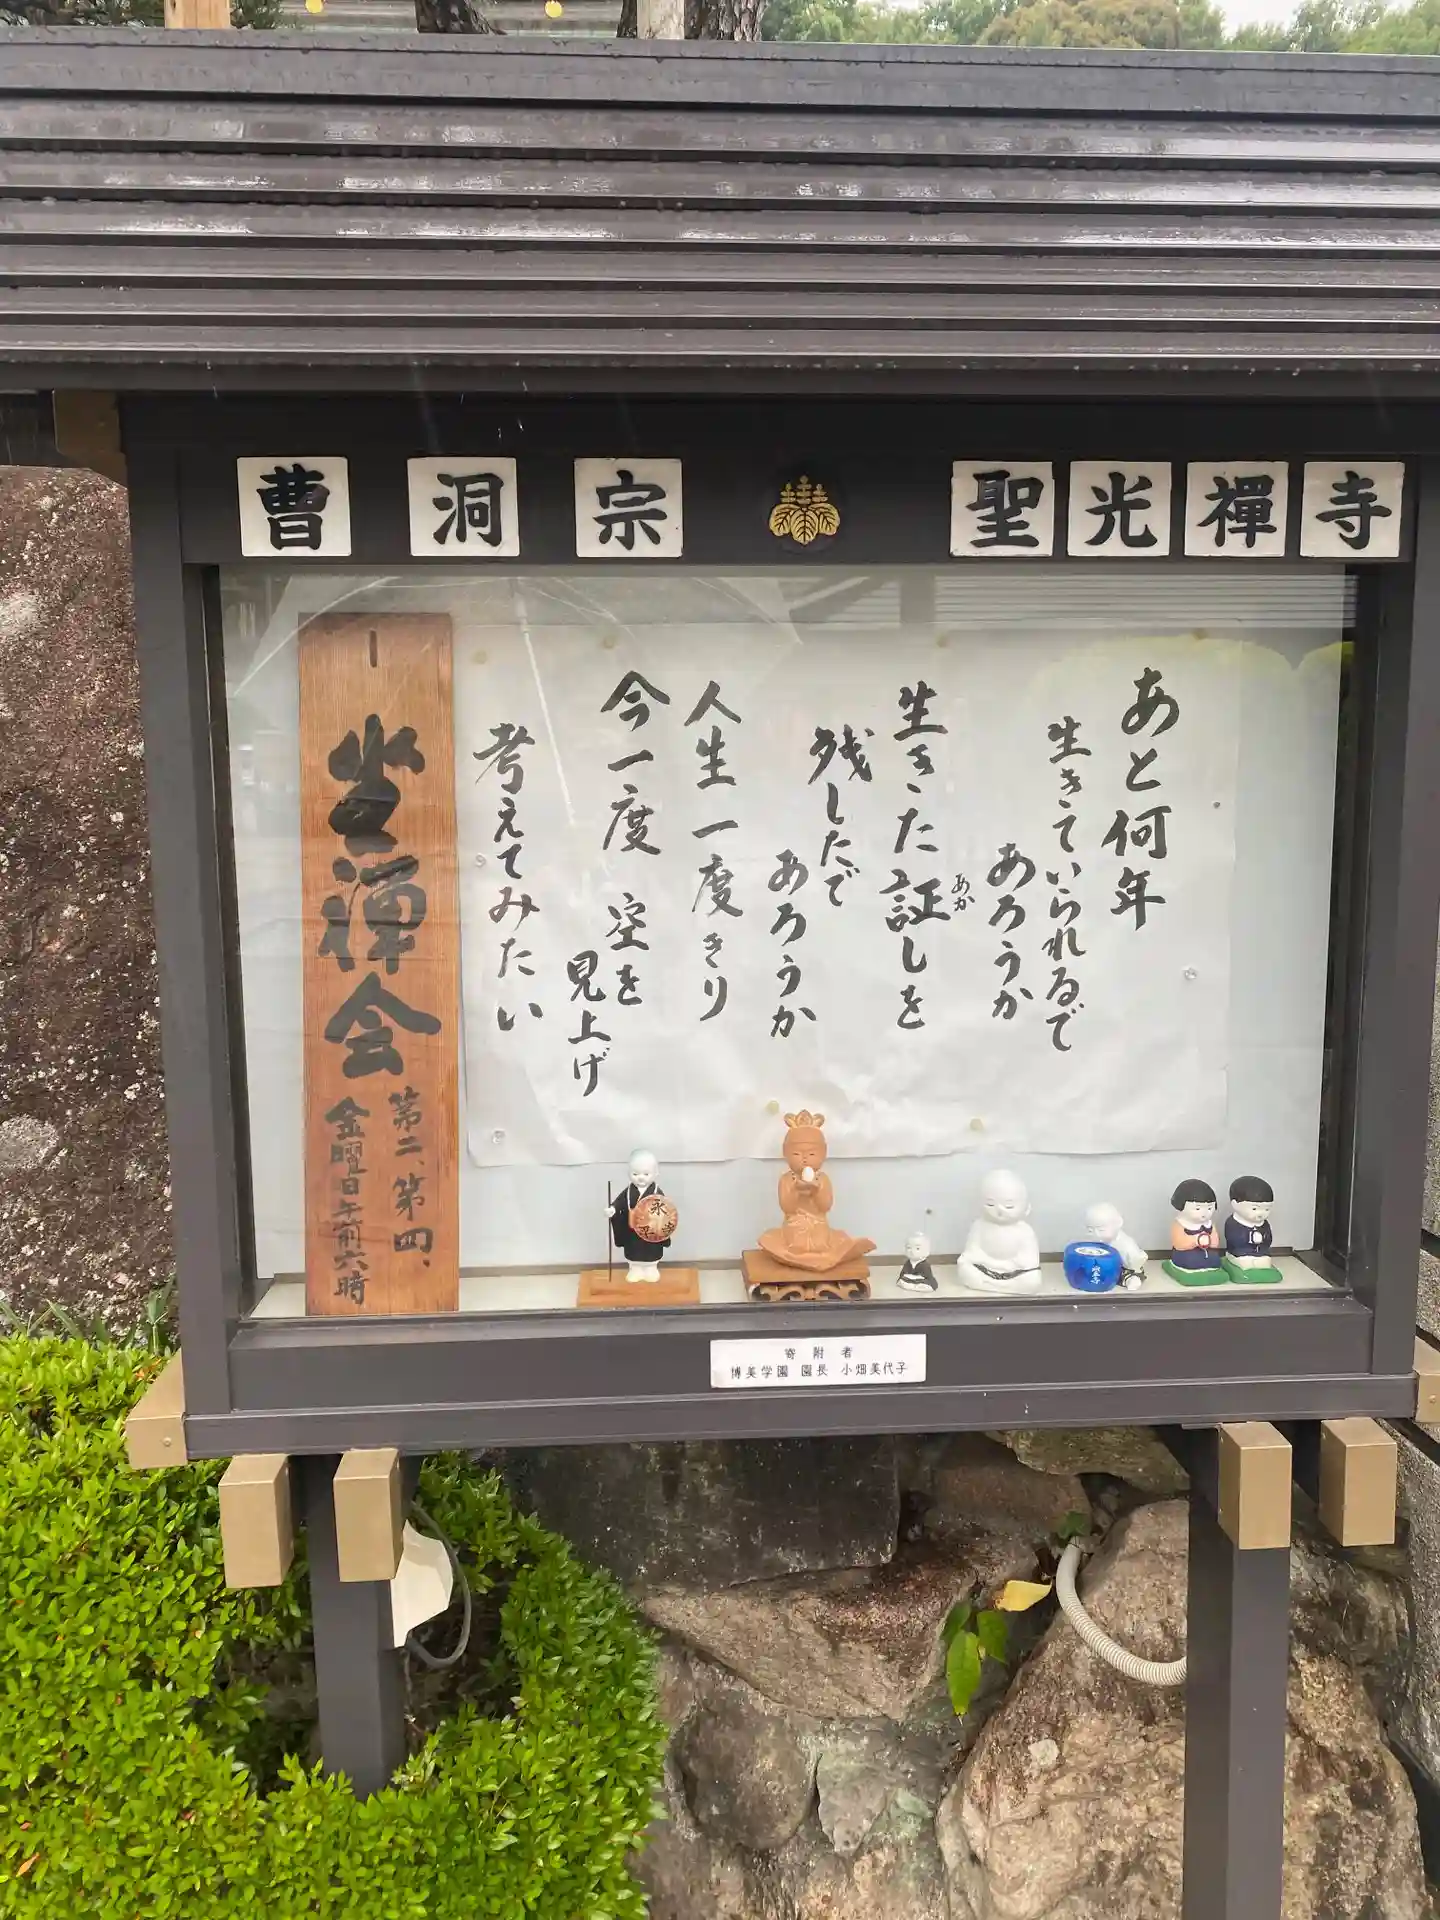 曹洞宗
聖光禪寺
あと何年
生きていられるで
あろうか
生きた証しを
あか
残したで
あろうか
人生一度きり
今一度 空を
見上げ
考えてみたい
坐禅会
第二、第四、
金曜日午前六時
永平寺
寄附者
博美学園 園長 小畑美代子